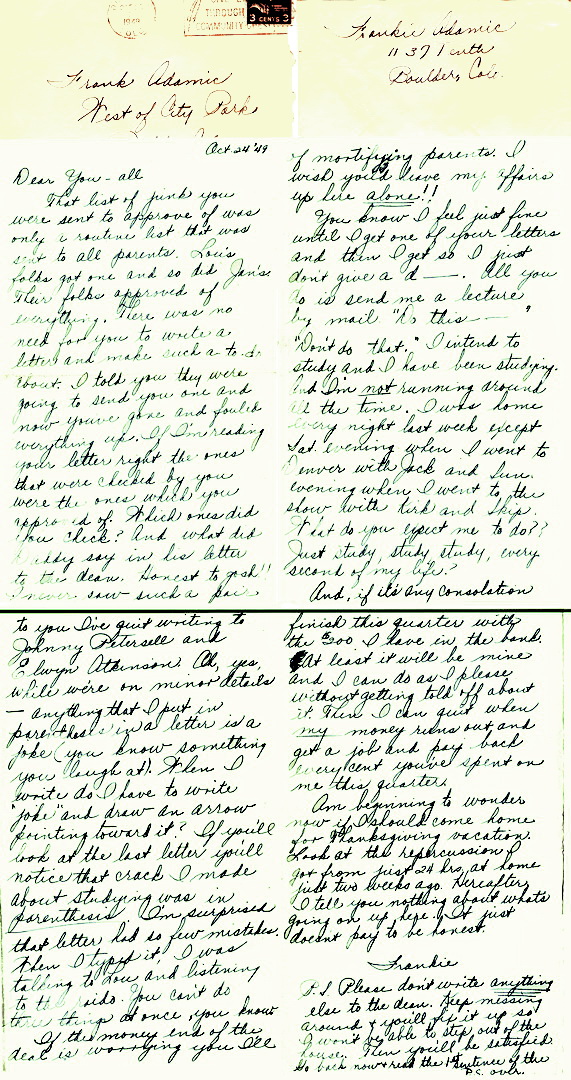 1949
THROUGH
COMMUNITY
3 CENTS 3
Frank Adamic
West of City Park
Frankie Adamic
1137 Tenth
Boulder, Colo.
Oct 24 '49
Dear You-all
That list of junk you
were sent to approve of was
only a routine list that was
sent to all parents. Lou's
folks got one and so did Jan's.
Their folks approved of
everything. There was no
need for you to write a
letter and make such a to-do
about. I told you they were
going to send you one and
now youve gone and fouled
everything up. If I'm reading
your letter right the ones
that were checked by you
were the ones which you
approved of. Which ones did
you check? And what did
Daddy say in his letter
to the dean. Honest to gosh!!
I never saw such a pair
of mortifying parents. I
wish you'd leave my affairs
up here alone!!
You know I feel just fine
until I get one of your letters
and then I get so I just
don't give a d——. All you
do is send me a lecture
by mail "Do this — — "
"Don't do that." I intend to
study and I have been studying.
And I'm not running around
all the time. I was home
every night last week except
Sat. evening when I went to
Denver with Jack and Sun.
evening when I went to the
show with Kirk and Skip.
What do you expect me to do??
Just study, study study, every
second of my life?
And, if it's any consolation
to you I've quit writing to
Johnny Petersell and
Elwyn Atkinson. Oh, yes,
while were on minor details
— anything that I put in
parenthesis in a letter is a
joke (you know something
you laugh at). When I
write do I have to write
"joke" and draw an arrow
pointing toward it? If you'll
look at the last letter you'll
notice that crack I made
about studying was in
parenthesis. I'm surprised
that letter had so few mistakes.
When I typed it I was
talking to Lou and listening
to the raido. You can't do
three things at once, you know
If the money end of the
deal is worrying you I'll
finish this quarter with
the $300 I have in the bank.
At least it will be mine
and I can do as I please
without getting told off about
it. Then I can quit when
my money runs out and
get a job and pay back
every cent you've spent on
me this quarter.
Am beginning to wonder
now if I should come home
for Thanksgiving vacation.
Look at the repercussion I
got from just 24 hrs, at home
just two weeks ago. Hereafter
I tell you nothing about whats
going on up here. It just
doesnt pay to be honest.
Frankie
P.S. Please don't write anything
else to the dean. Keep messing
around & you'll fix it up so
I won't be able to step out of the
house. Then you'll be satisfied.
Go back now & read the 1st sentence of the
P.S. over.